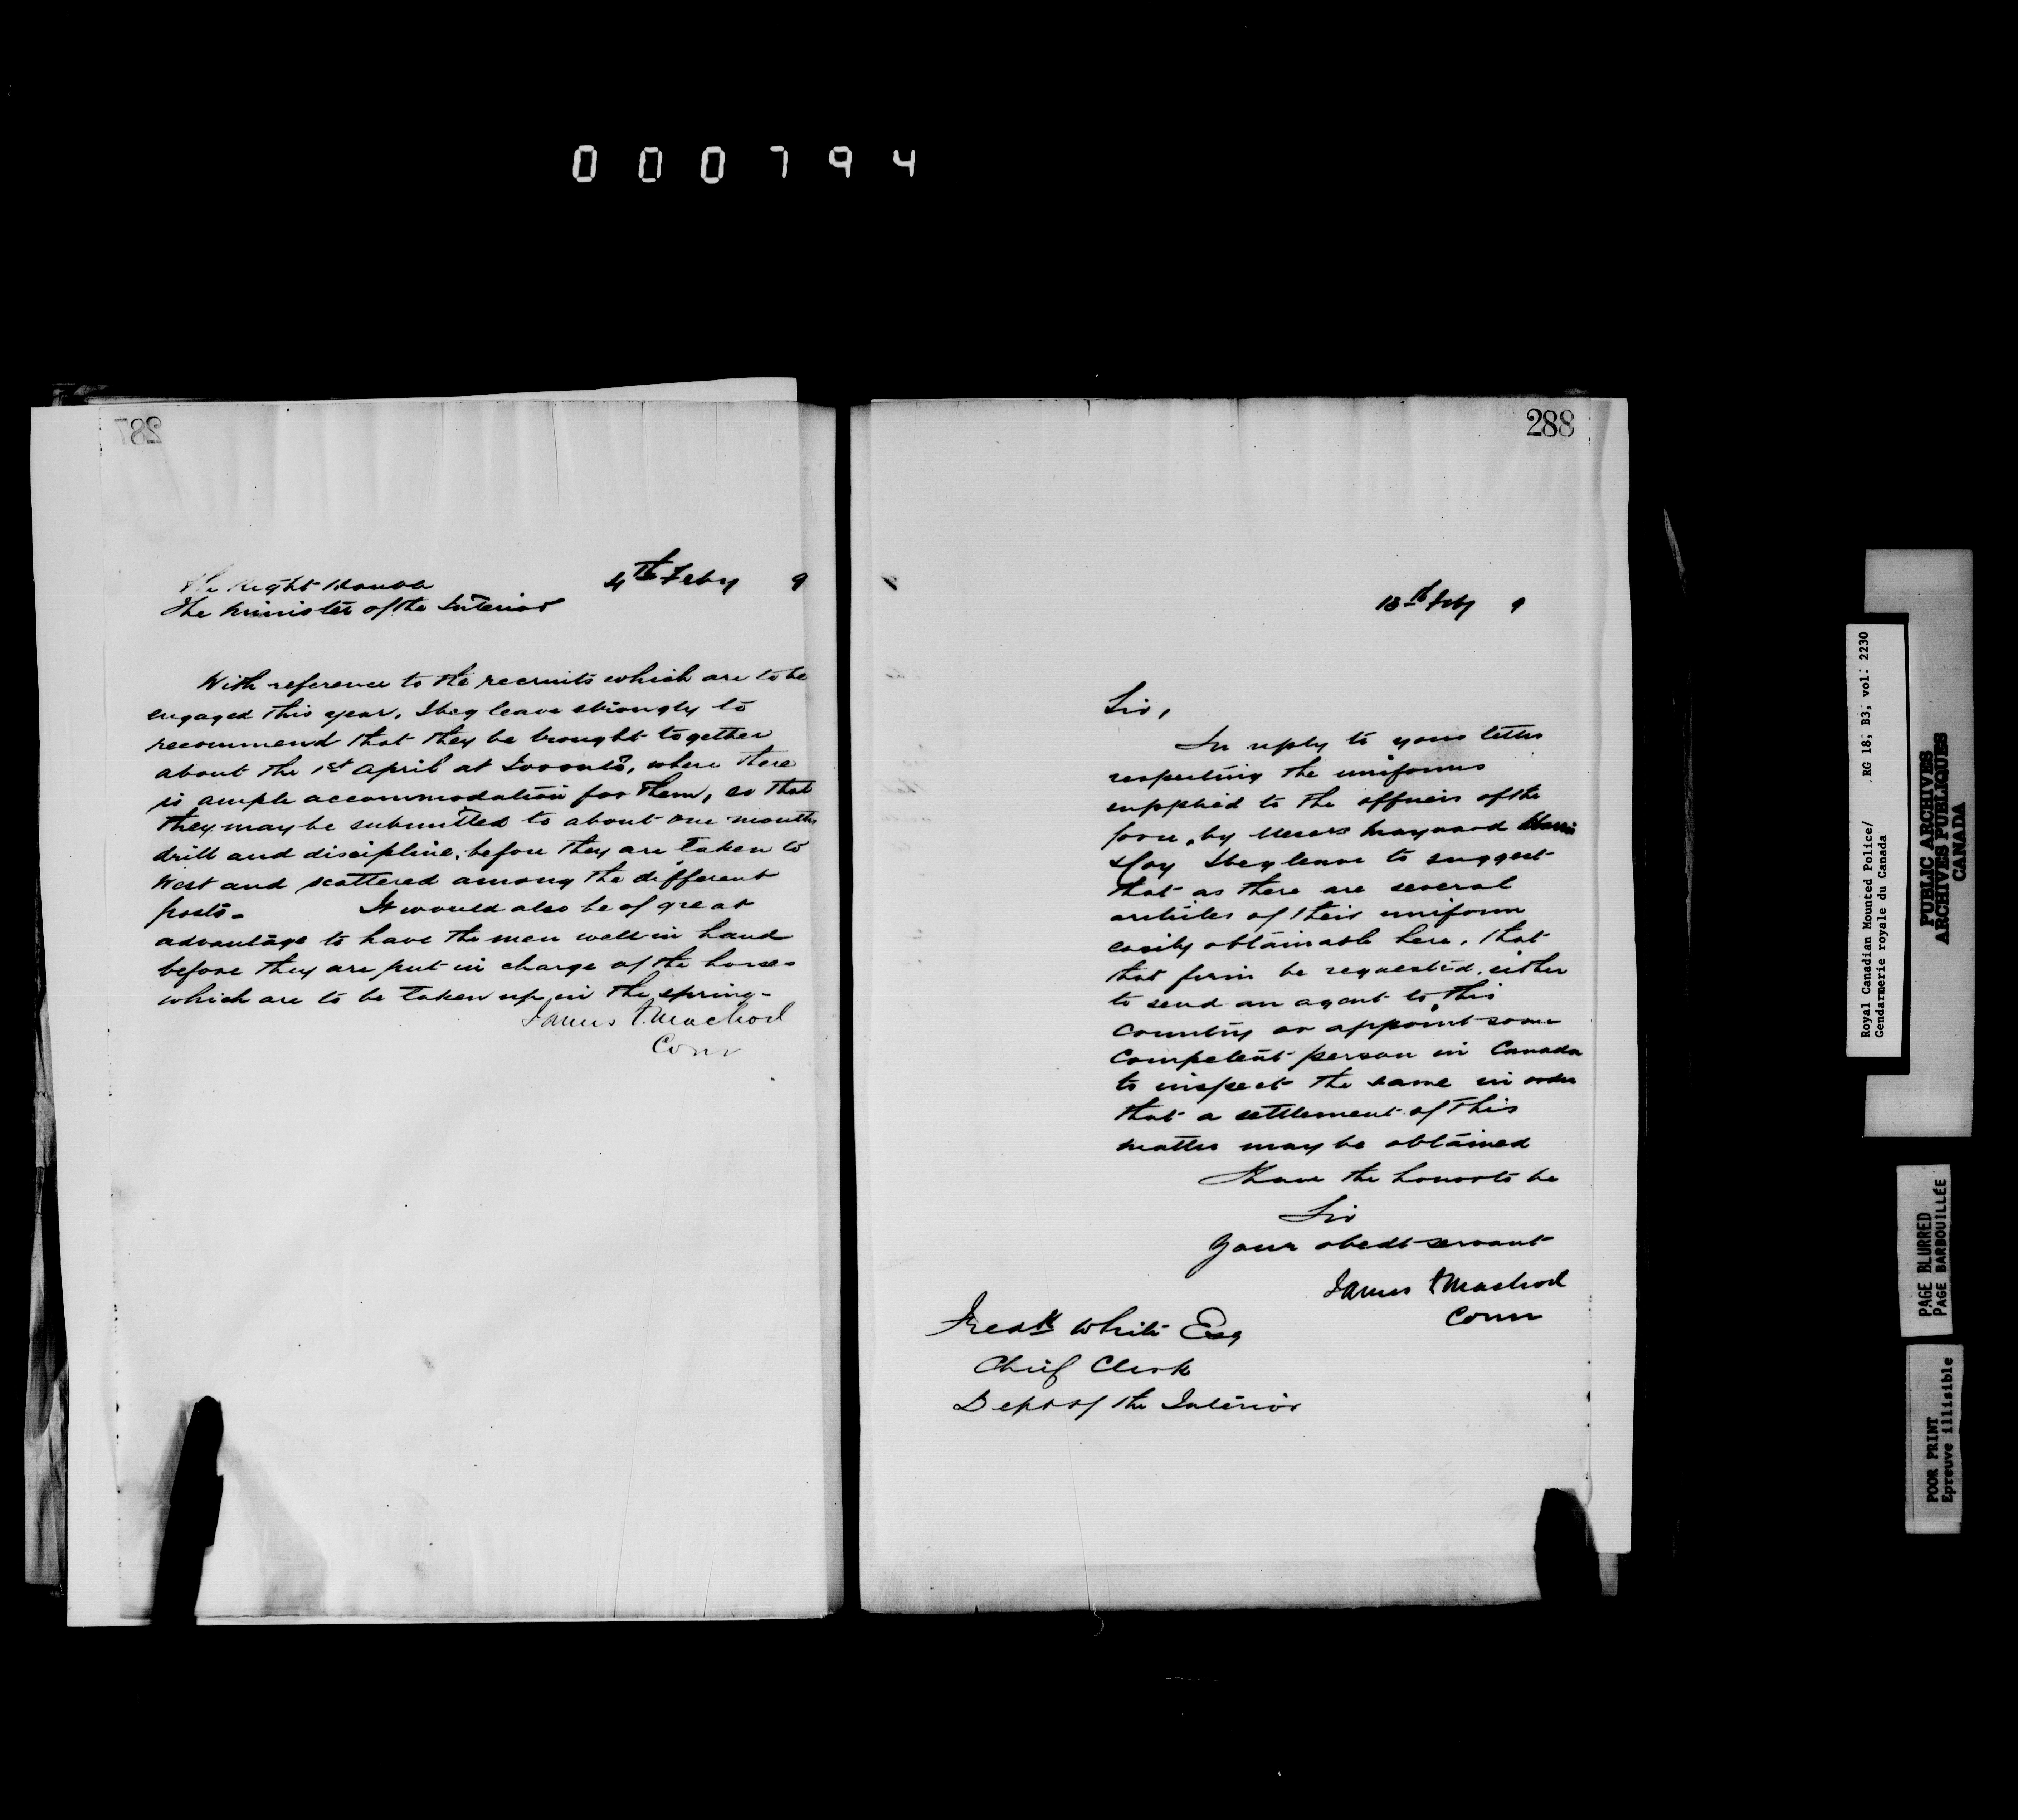 000794
287
The Right Honble 4th Feby 9
The Minister of the Interior
With reference to the recruits which are to be
engaged this year, I beg leave strongly to
recommend that they be brought together
about the 1st April at Toronto, where there
is ample accommodation for them, so that
they may be submitted to about one months
drill and discipline, before they are taken to
West and scattered among the different
posts- It would also be of great
advantage to have the men well in hand
before they are put in charge of the horses
which are to be taken up in the spring-
James F. Macleod
Comr
288
13th Feby 9
Sir,
In reply to your letter
respecting the uniforms
supplied to the officers of the
force, by Messrs Maynard Harris
&Coy I beg leave to suggest
that as there are several
articles of their uniform
easily obtainable here, that
that firm be requested, either
to send an agent to this
country or appoint some
competent person in Canada
to inspect the same in order
that a settlement of this
matter may be obtained
I have the honor to be
Sir
Your obedt servant
James F Macleod
Comr
Fredk White Esq
Chief Clerk
Dept of the Interior
Royal Canadian Mounted Police/ RG 18; B3; vol. 2230
Gendarmerie royale du Canada
PUBLIC ARCHIVES
ARCHIVES PUBLIQUES
CANADA
PAGE BLURRED
PAGE BARBOUILLÉE
POOR PRINT
Epreuve illisible